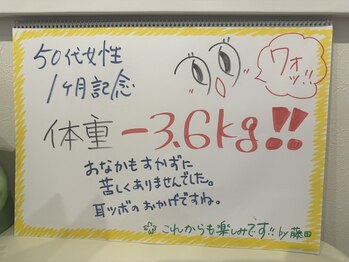 50代女性
1ヶ月記念
ワォッ!!
体重 -3.6kg!!
おなかもすかずに
苦しくありませんでした。
耳ツボのおかげですね。
これからも楽しみです!! by 藤田